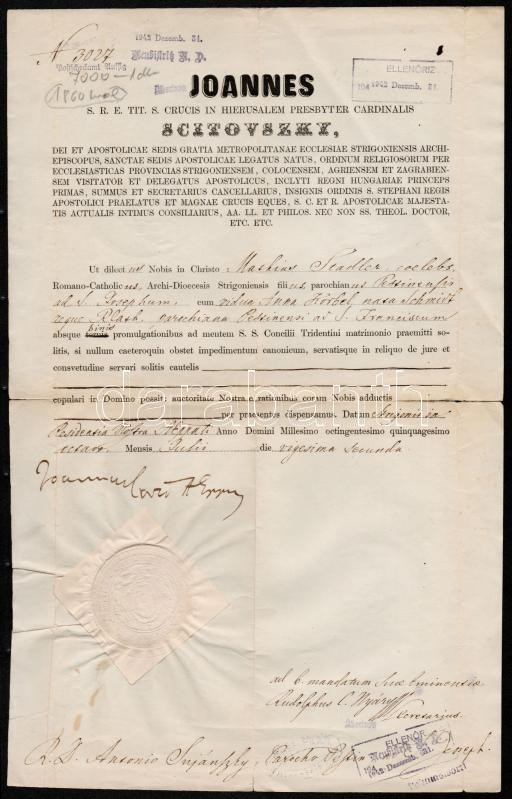 N 3027
1942 Dezemb. 31.
Neubistritz N. D.
7000-
ELLENŐRIZ
194 1942 Dezemb. 31.
JOANNES
S. R. E. TIT. S. CRUCIS IN HIERUSALEM PRESBYTER CARDINALIS
SCITOVSZKY,
DEI ET APOSTOLICAE SEDIS GRATIA METROPOLITANAE ECCLESIAE STRIGONIENSIS ARCHI-
EPISCOPUS, SANCTAE SEDIS APOSTOLICAE LEGATUS NATUS, ORDINUM RELIGIOSORUM PER
ECCLESIASTICAS PROVINCIAS STRIGONIENSEM, COLOCENSEM, AGRIENSEM ET ZAGRABIEN-
SEM VISITATOR ET DELEGATUS APOSTOLICUS, INCLYTI REGNI HUNGARIAE PRINCEPS
PRIMAS, SUMMUS ET SECRETARIUS CANCELLARIUS, INSIGNIS ORDINIS S. STEPHANI REGIS
APOSTOLICI PRAELATUS ET MAGNAE CRUCIS EQUES, S. C. ET R. APOSTOLICAE MAJESTA-
TIS ACTUALIS INTIMUS CONSILIARIUS, AA. LL. ET PHILOS. NEC NON SS. THEOL. DOCTOR,
ETC. ETC.
Ut dilectus Nobis in Christo Mathias Stadler, coelebs,
Romano-Catholicus, Archi-Dioecesis Strigoniensis filius, parochianus Pestinensis
ad S. Josephum, cum vidua Anna Körbel nata Schmidt
aeque R. Cath. parochiana Pestinensi ad S. Franciscum
absque binis promulgationibus ad mentem S. S. Concilii Tridentini matrimonio praemitti so-
litis, si nullum caeteroquin obstet impedimentum canonicum, servatisque in reliquo de jure et
consvetudine servari solitis cautelis
copulari in Domino possit: auctoritate Nostra e rationibus coram Nobis adductis
per praesentes dispensamus. Datum Strigonii in
Residentia Nostra Anno Domini Millesimo octingentesimo quinquagesimo
octavo Mensis Julii die vigesima secunda
darabanth
ad b. mandatum Suae Eminentiae
Rudolphus C. Nyáry
Secretarius.
ELLENŐR
194
1942 Dezemb. 31.
R. D. Antonio Parocho Pestin Joseph.